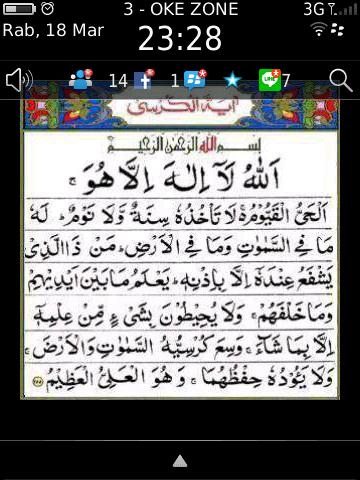 3 - OKE ZONE 3G
Rab, 18 Mar
23:28
14 1 7
آية الكرسي
بِسْمِ اللهِ الرَّحْمٰنِ الرَّحِيْمِ
اَللهُ لَآ اِلٰهَ اِلَّا هُوَ ۚ
اَلْحَيُّ الْقَيُّوْمُ ۚ لَا تَأْخُذُهٗ سِنَةٌ وَّلَا نَوْمٌ ۗ لَهٗ
مَا فِي السَّمٰوٰتِ وَمَا فِي الْاَرْضِ ۗ مَنْ ذَا الَّذِيْ
يَشْفَعُ عِنْدَهٗٓ اِلَّا بِاِذْنِهٖ ۗ يَعْلَمُ مَا بَيْنَ اَيْدِيْهِمْ
وَمَا خَلْفَهُمْ ۚ وَلَا يُحِيْطُوْنَ بِشَيْءٍ مِّنْ عِلْمِهٖٓ
اِلَّا بِمَا شَآءَ ۚ وَسِعَ كُرْسِيُّهُ السَّمٰوٰتِ وَالْاَرْضَ ۚ
وَلَا يَـُٔوْدُهٗ حِفْظُهُمَا ۚ وَهُوَ الْعَلِيُّ الْعَظِيْمُ